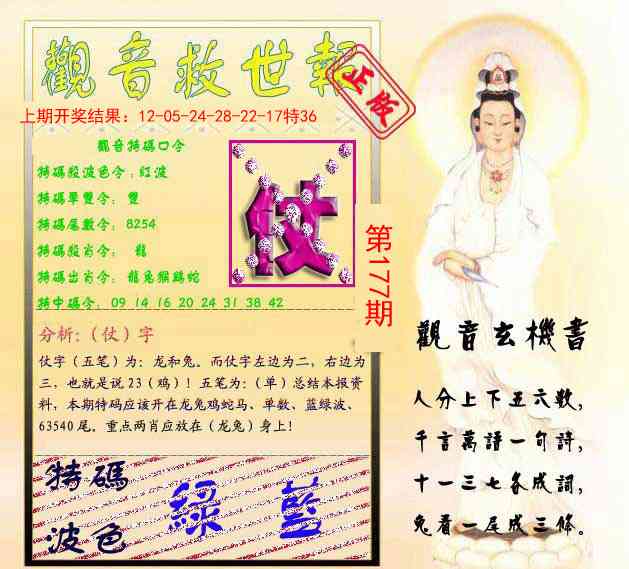 觀音救世報
正版
上期开奖结果：12-05-24-28-22-17特36
觀音特碼口令
特碼殺波色令：紅波
特碼單雙令： 雙
特碼尾數令： 8254
特碼殺肖令： 龍
特碼出肖令： 龍兔猴鷄蛇
特中碼令： 09 14 16 20 24 31 38 42
仗
第177期
分析:（仗）字
仗字（五笔）为：龙和兔。而仗字左边为二，右边为
三，也就是说 23（鸡）！五笔为：（单）总结本报资
料，本期特码应该开在龙兔鸡蛇马、单数、蓝绿波、
63540 尾。重点两肖应放在（龙兔）身上！
特碼
波色
綠 藍
觀音玄機書
人分上下五六數，
千言萬語一句詩，
十一三七各成詞，
兔看一尾成三條。